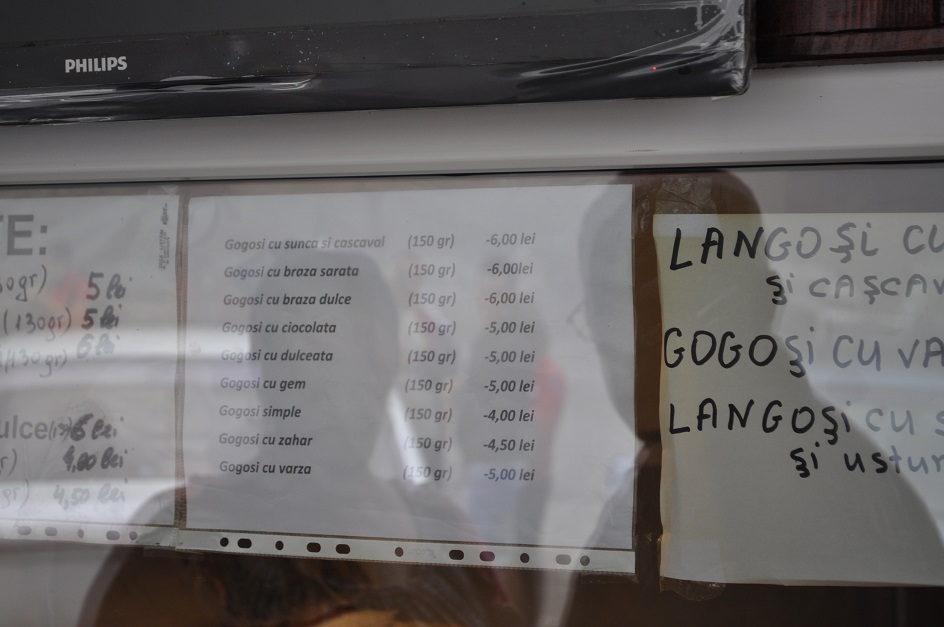 PHILIPS
TE:
gr)
5 lei
(130gr) 5 lei
(130 gr) 6 lei
ulce 6 lei
4,00 lei
gr) 4,50 lei
Gogosi cu sunca si cascaval (150 gr) -6,00 lei
Gogosi cu braza sarata (150 gr) -6,00lei
Gogosi cu braza dulce (150 gr) -6,00 lei
Gogosi cu ciocolata (150 gr) -5,00 lei
Gogosi cu dulceata (150 gr) -5,00 lei
Gogosi cu gem (150 gr) -5,00 lei
Gogosi simple (150 gr) -4,00 lei
Gogosi cu zahar (150 gr) -4,50 lei
Gogosi cu varza (150 gr) -5,00 lei
LANGOȘI CU
și CAȘCAV
GOGOȘi CU VA
LANGOȘi CU S
și ustur